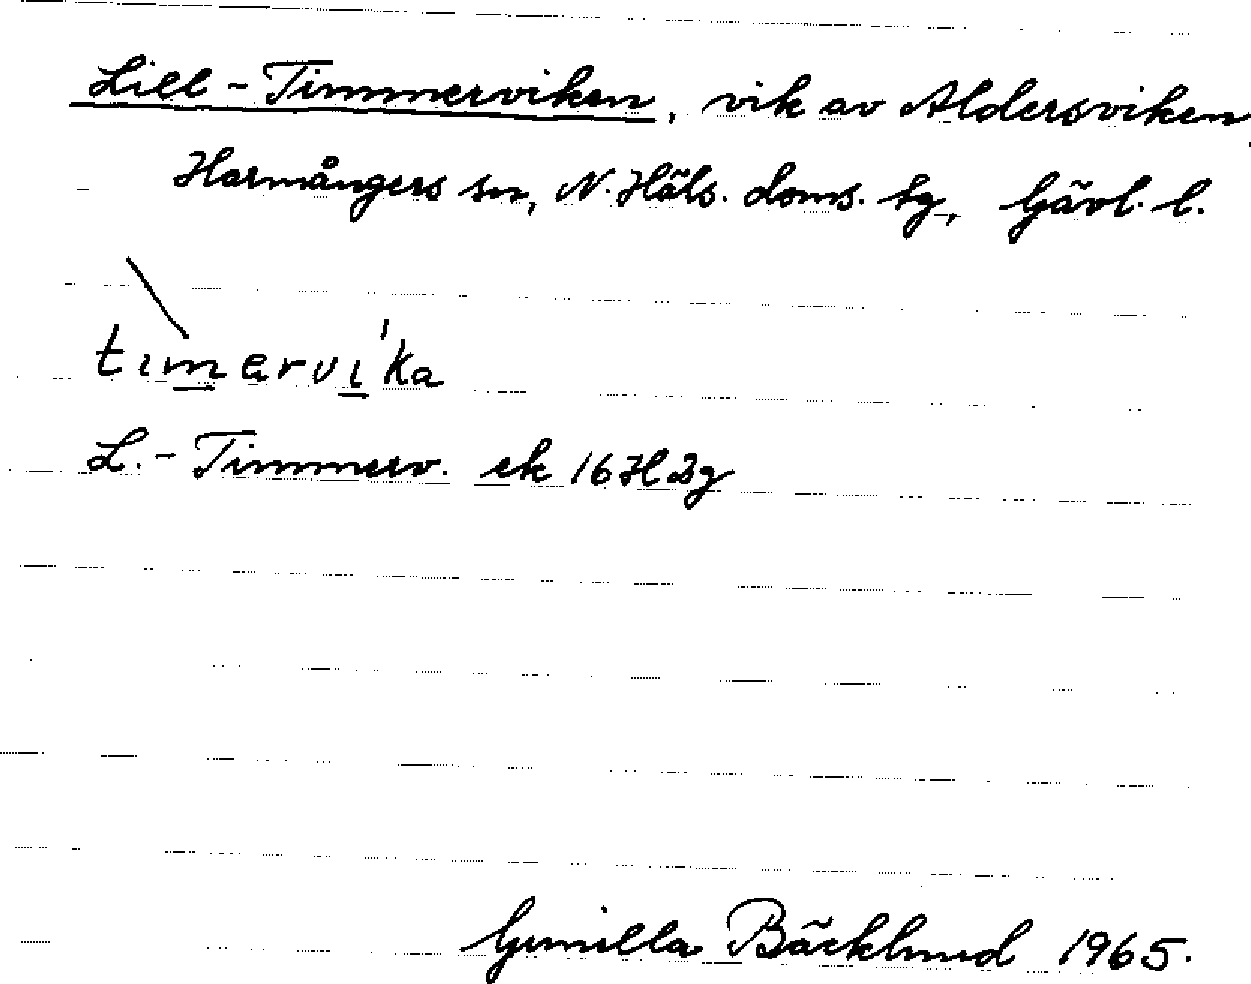 Lill-Timmerviken, vik av Aldersviken
Harmångers sn, N. Häls. doms. tg, Gävl. l.
tımərvı'ka
L.-Timmerv. ek 16H2g
Gunilla Bäcklund 1965.